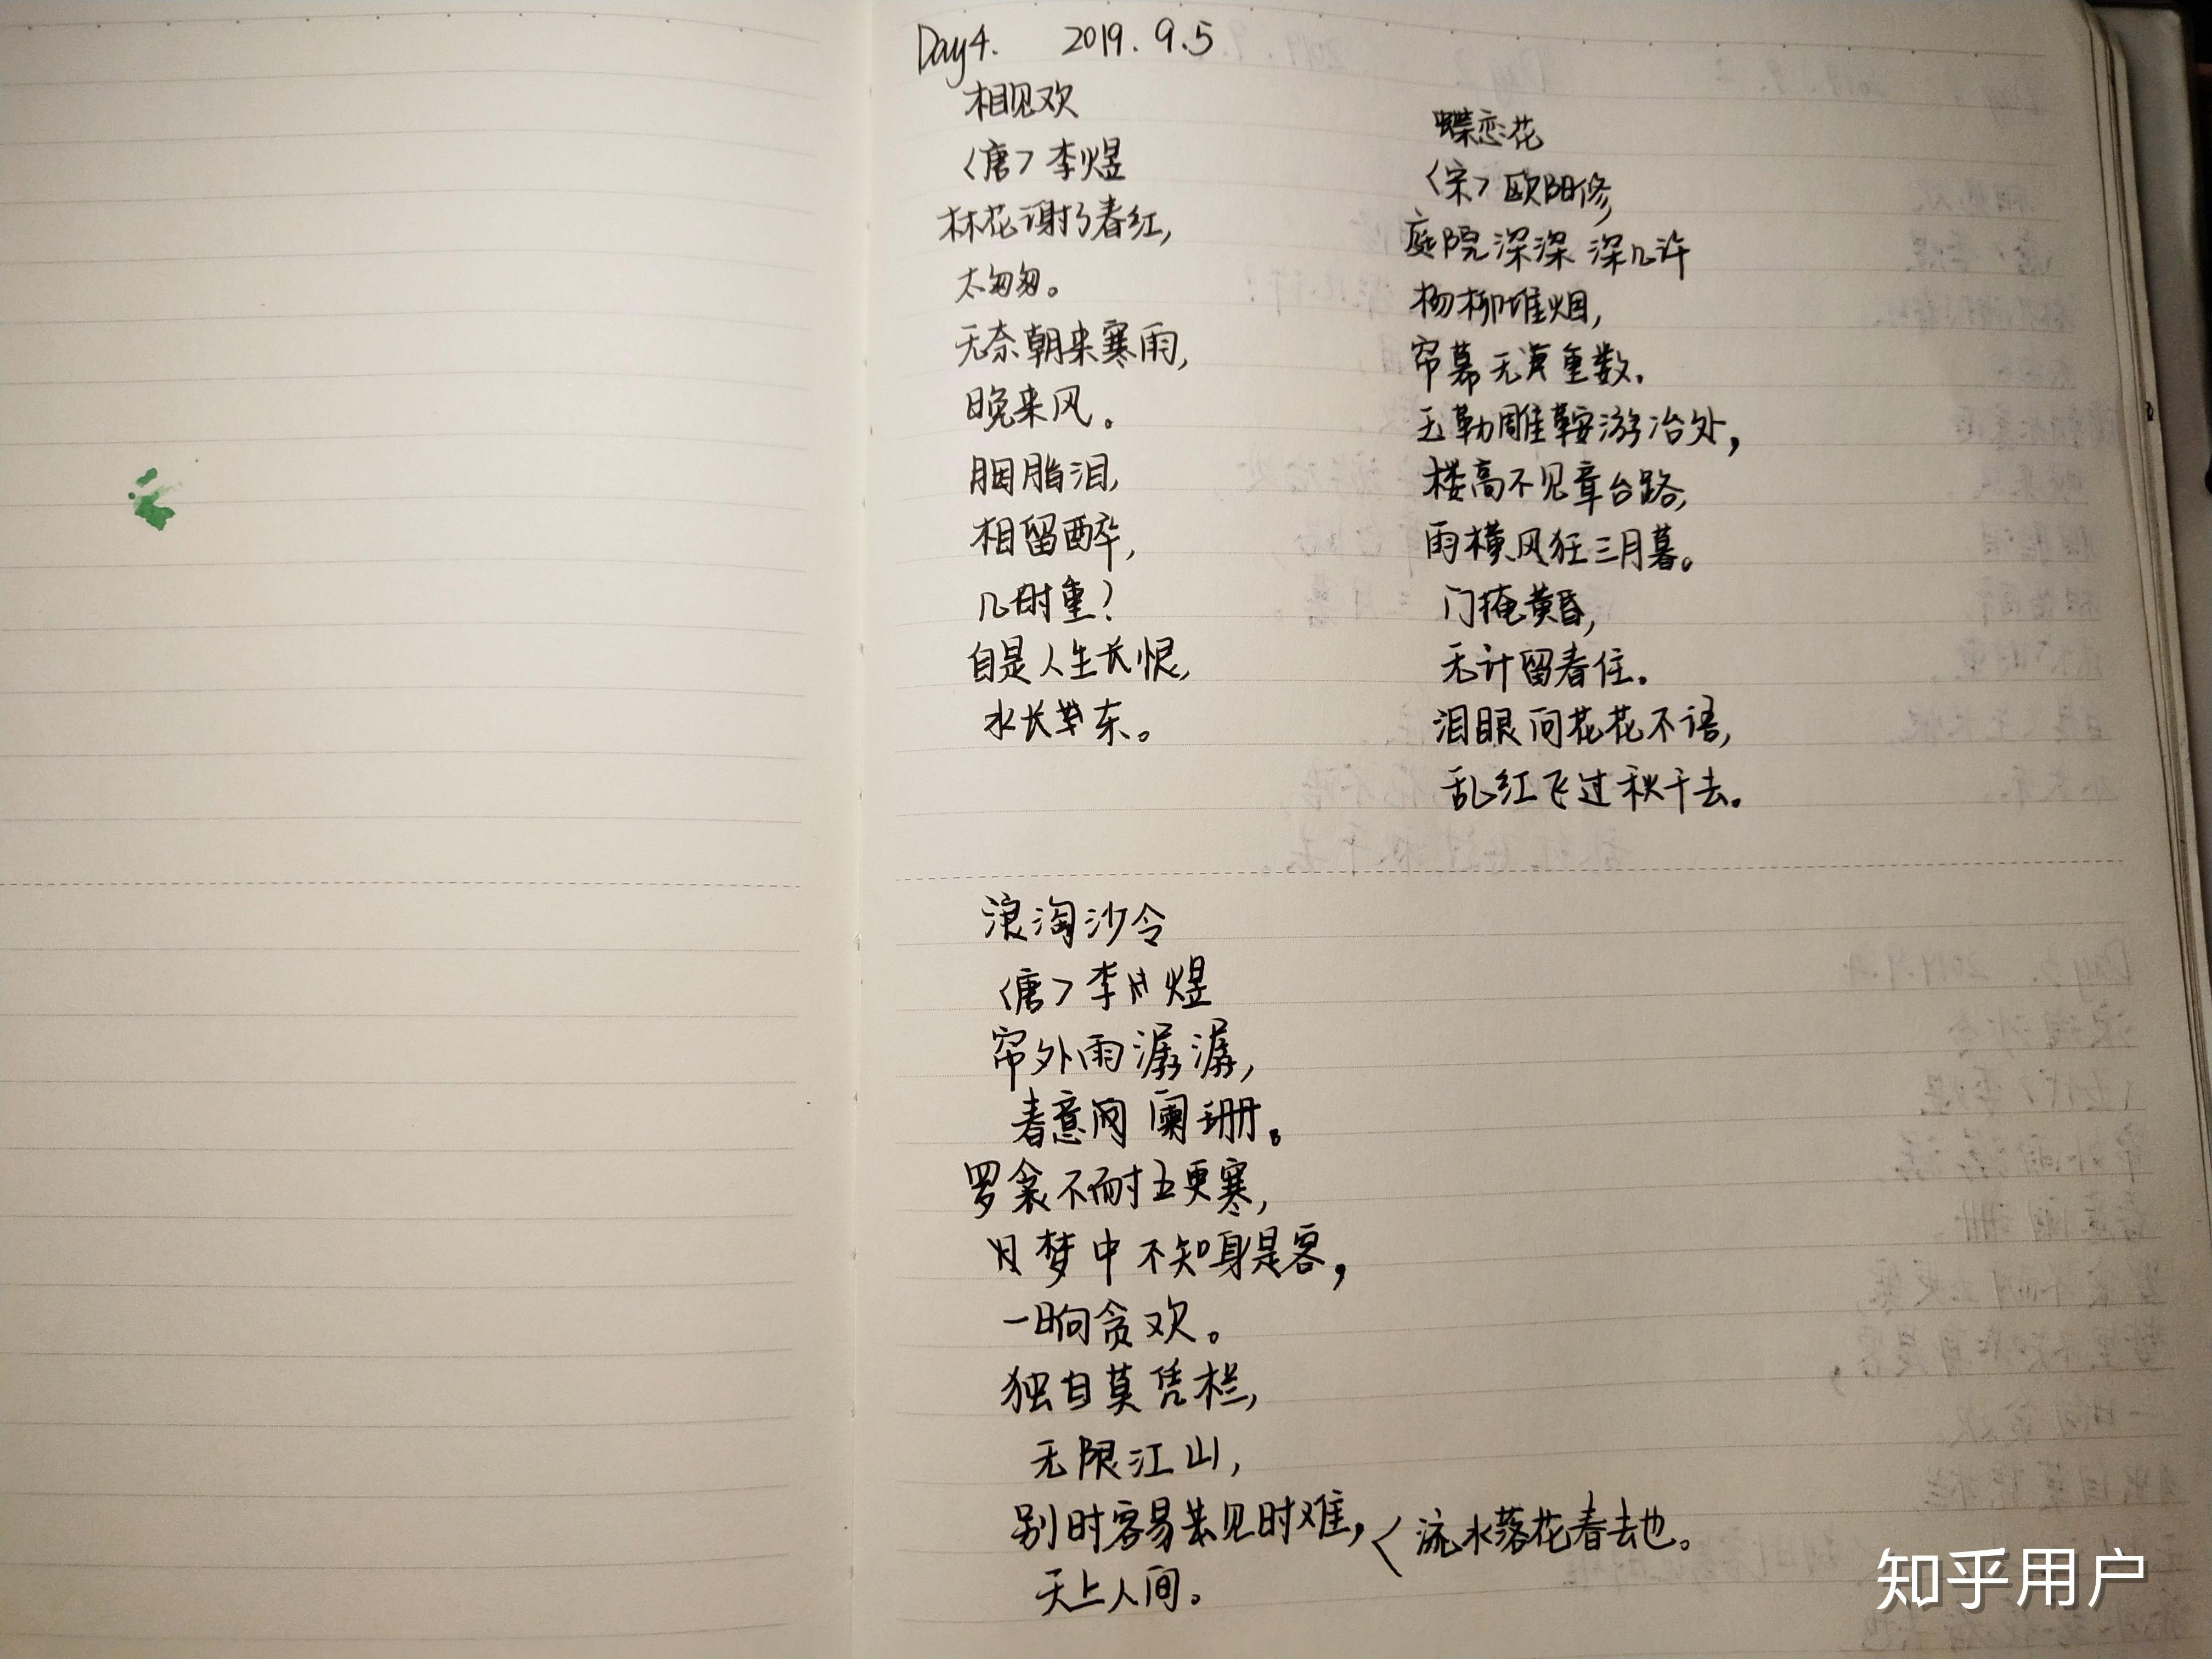 Day4. 2019.9.5
相见欢
〈唐〉李煜
林花谢了春红,
太匆匆。
无奈朝来寒雨,
晚来风。
胭脂泪,
相留醉,
几时重?
自是人生长恨,
水长东。
蝶恋花
〈宋〉欧阳修
庭院深深 深几许
杨柳堆烟,
帘幕无重数.
玉勒雕鞍游冶处,
楼高不见章台路,
雨横风狂三月暮。
门掩黄昏,
无计留春住.
泪眼问花花不语,
乱红飞过秋千去.
浪淘沙令
〈唐〉李煜
帘外雨潺潺,
春意阑珊。
罗衾不耐五更寒,
梦中不知身是客,
一晌贪欢。
独自莫凭栏,
无限江山,
别时容易见时难,〈流水落花春去也。
天上人间。
知乎用户